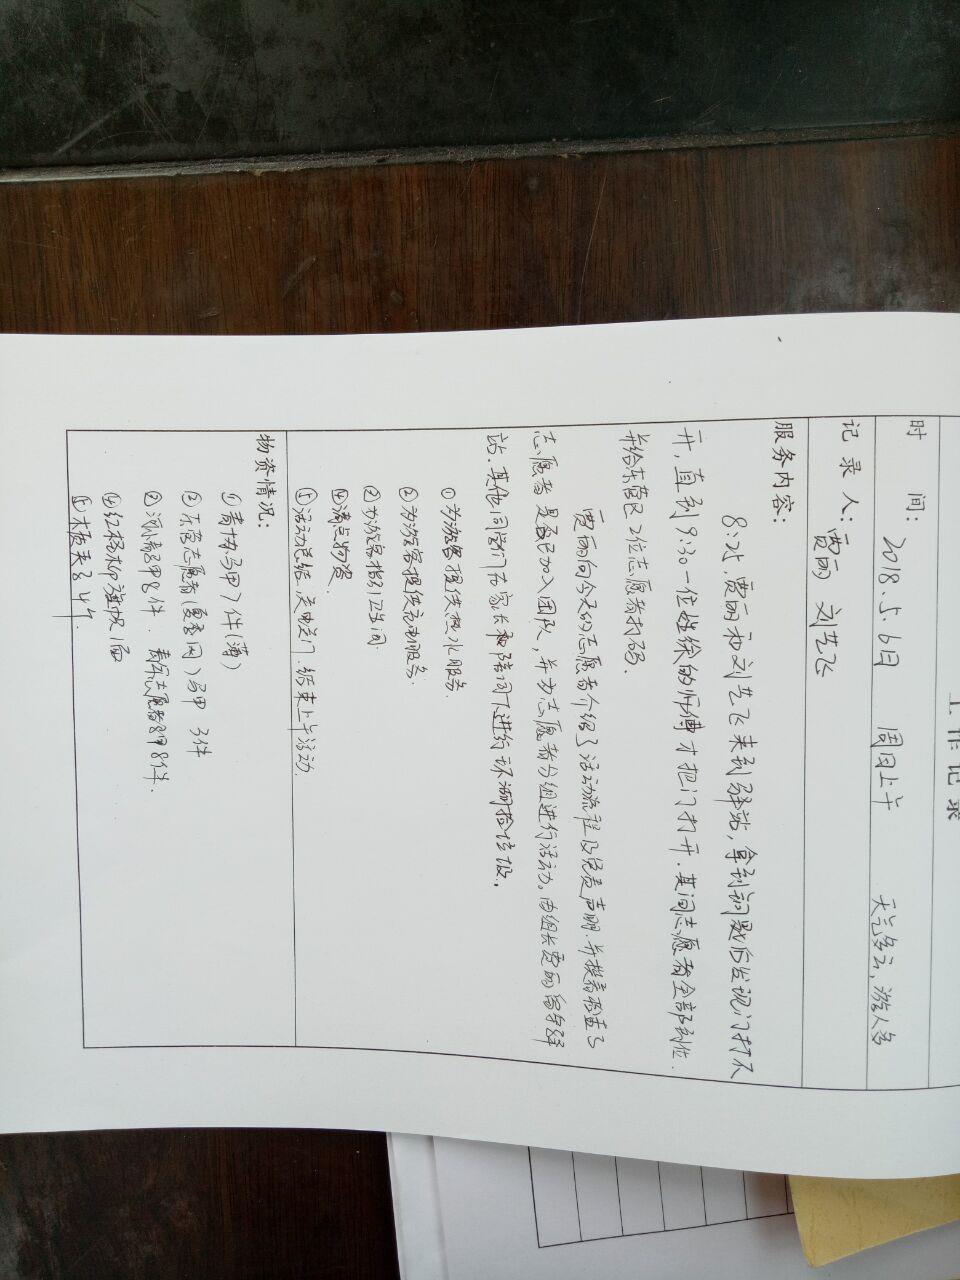 工作记录
时 间： 2018.5.6日 周日上午 天气多云，游人多
记 录 人： 贾丽 刘艺飞
服务内容：
8:25 贾丽和刘艺飞来到驿站，拿到钥匙后发现门打不
开，直到9:30一位姓徐的师傅才把门打开．其间志愿者全部到位．
并给东营区2位志愿者打码．
贾丽向今天的志愿者介绍了活动流程及免责声明．并检查了
志愿者是否已加入团队，并为志愿者分组进行活动．由组长贾丽留守驿
站．其他同学们在家长陪同下进行环湖捡垃圾．
① 为游客提供热水服务
② 为游客提供充电服务．
③ 为游客指引卫生间
④ 清点物资
⑤ 活动总结，关电关门．结束上午活动．
物资情况：
① 青协马甲7件（薄）
② 东营志愿者（夏季网）马甲 3件
③ 马甲8件． 志愿者马甲8件．
④ 红杨柳旗帜1面
⑤ 木板夹子4个．